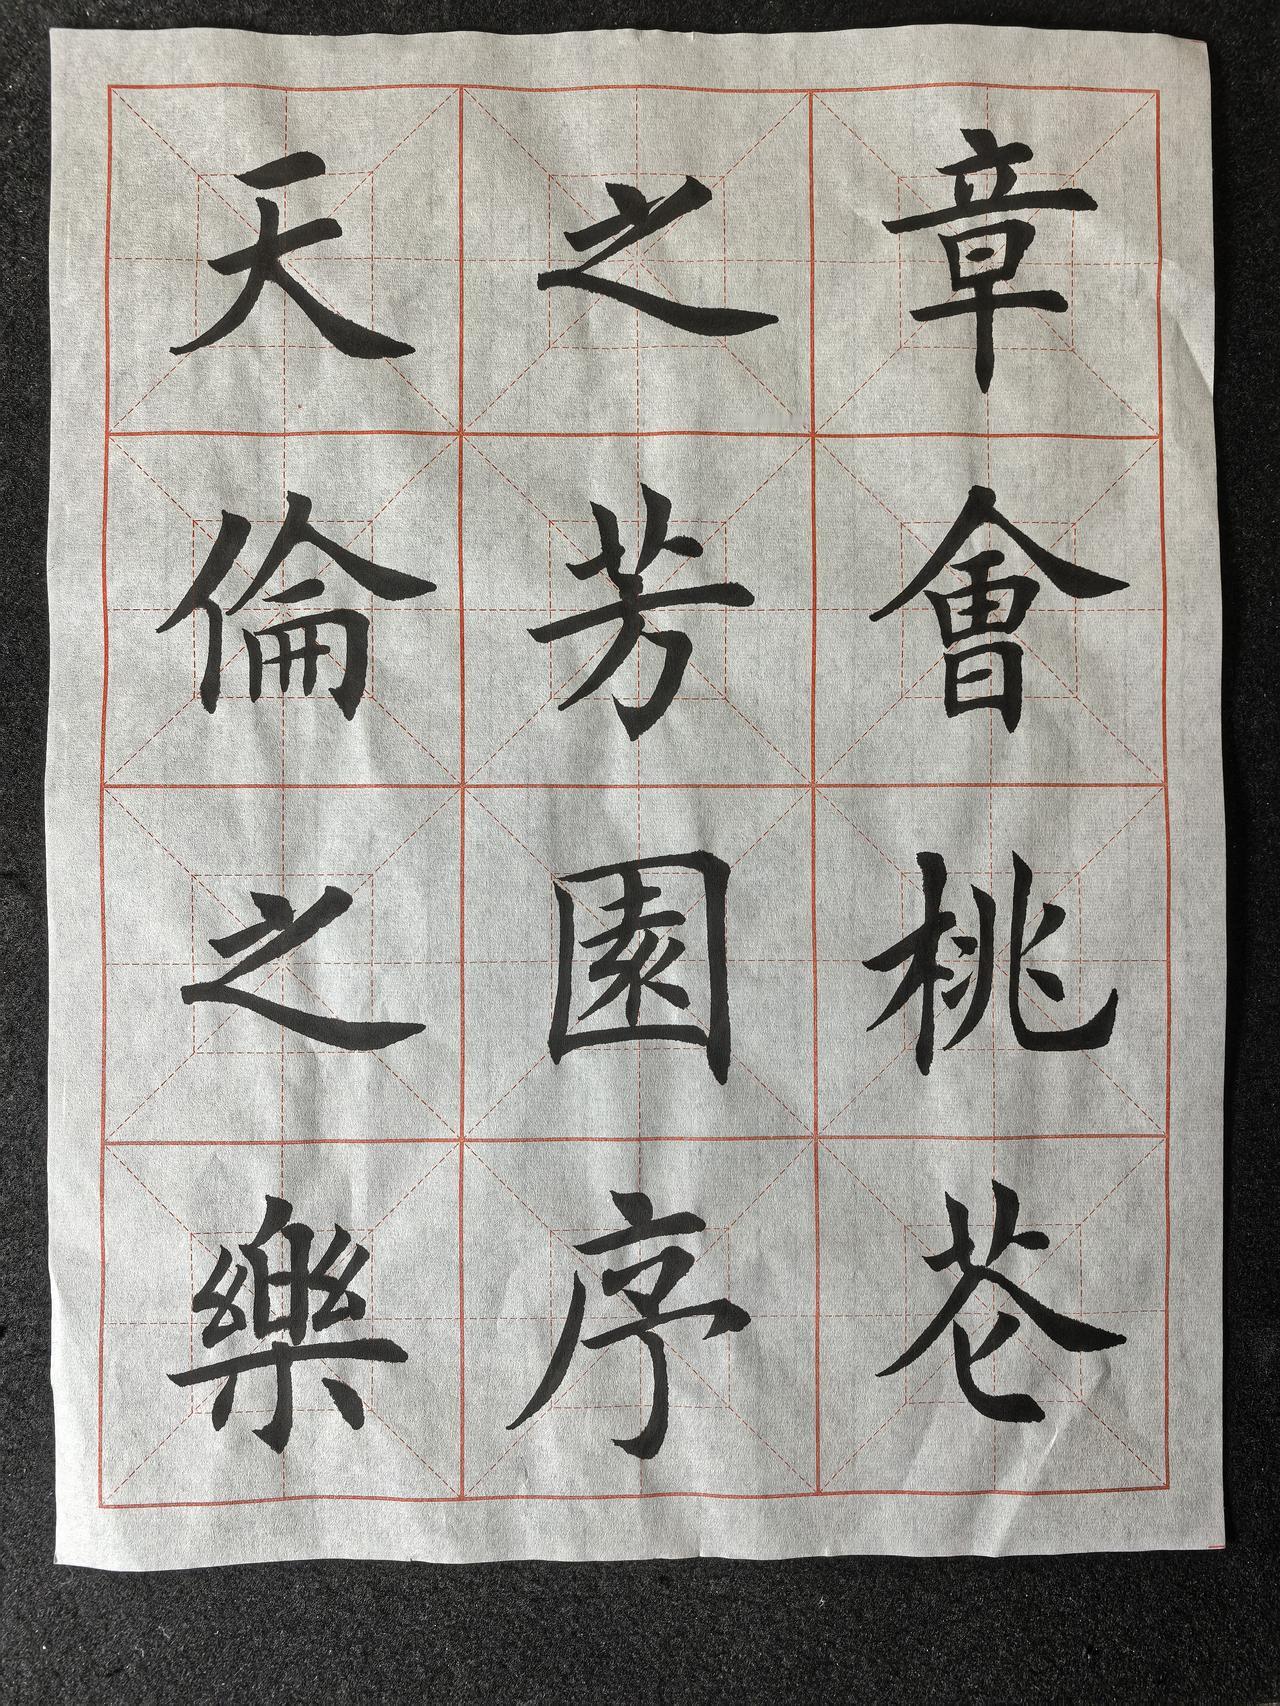 章會桃芲
之芳園序
天倫之樂